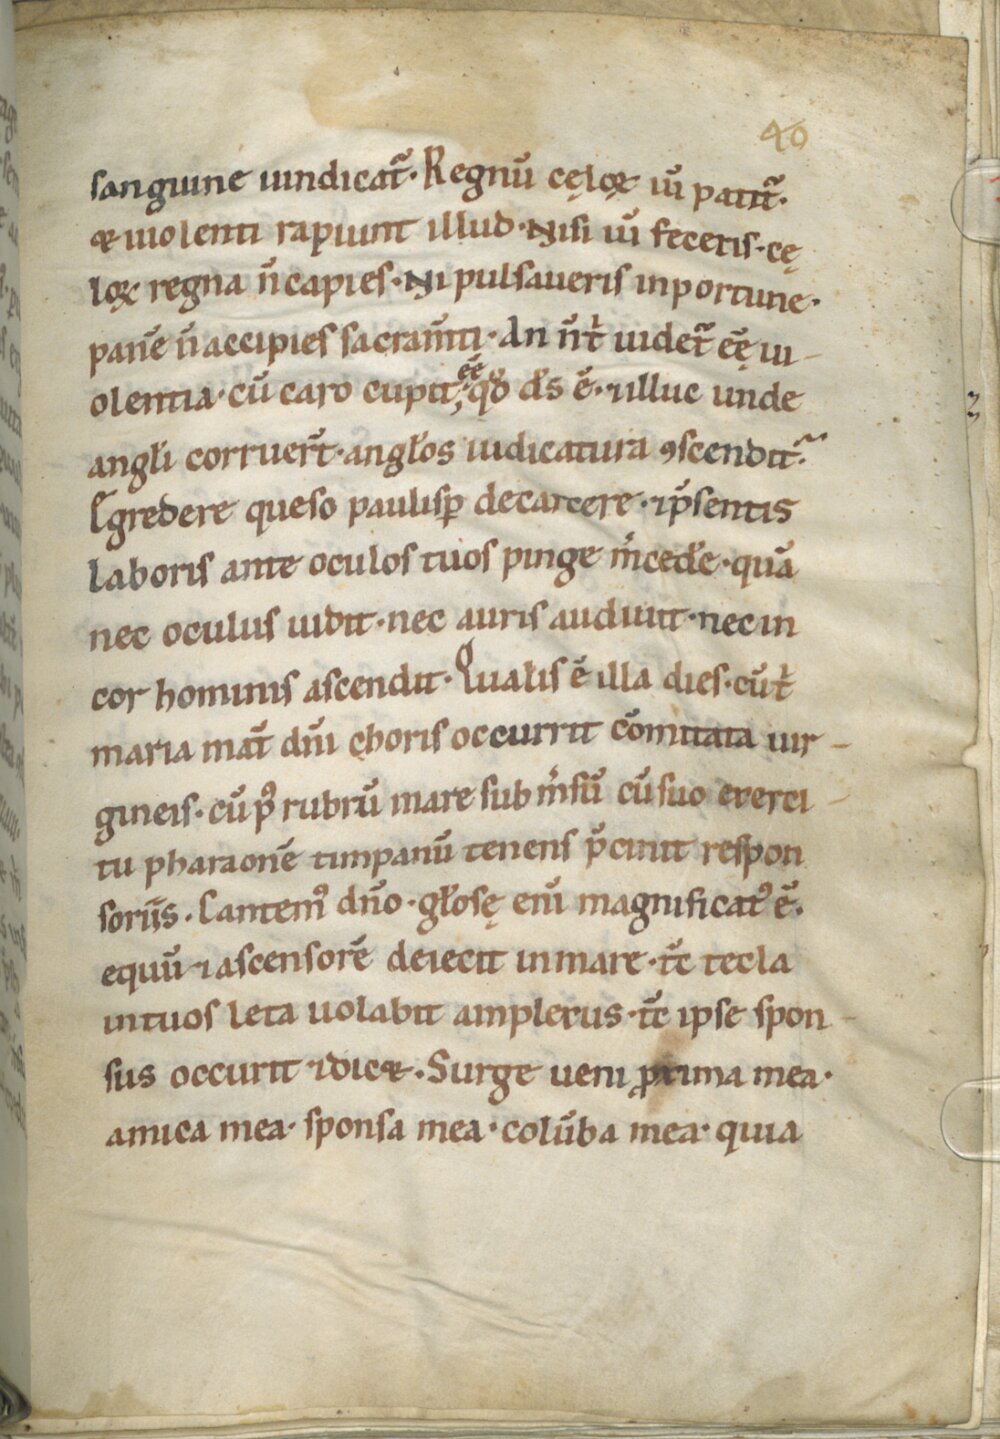 40
sanguine uindicat᷑. Regnū cęloꝝ uī patit᷑.
& uiolenti rapiunt illud. Nisi uī feceris. cę
loꝝ regna n̄ capies. Ni pulsaueris inportune.
panē n̄ accipies sacram̄ti. An n̄ t̍ uidet᷑ eę̄ ui-
olentia. cū caro cupit ēē qđ d̄s ē. ⁊ illuc unde
angłi corruer̄t. angłos iudicatura ꝯscendit᷑.
Egredere queso paulisꝑ de carcere. ⁊ p̄sentis
laboris ante oculos tuos pinge m̍cedē. quā
nec oculus uidit. nec auris audiuit. nec in
cor hominis ascendit. Qualis ē illa dies. cū t̍
maria mat̄ dn̄i choris occurrit cōmitata uir-
gineis. cū pꝰ rubrū mare subm̍sū cū suo exerci-
tu pharaonē timpanū tenens p̄cinit respon
soriīs. Cantemꝰ dn̄o. głosę enī magnificatꝰ ē.
equū ⁊ ascensorē deiecit in mare. t̄c tecla
in tuos leta uolabit amplexus. t̄c ipse spon-
sus occurit ⁊ dic&. Surge ueni ꝓxima mea.
amica mea. sponsa mea. colūba mea. quia